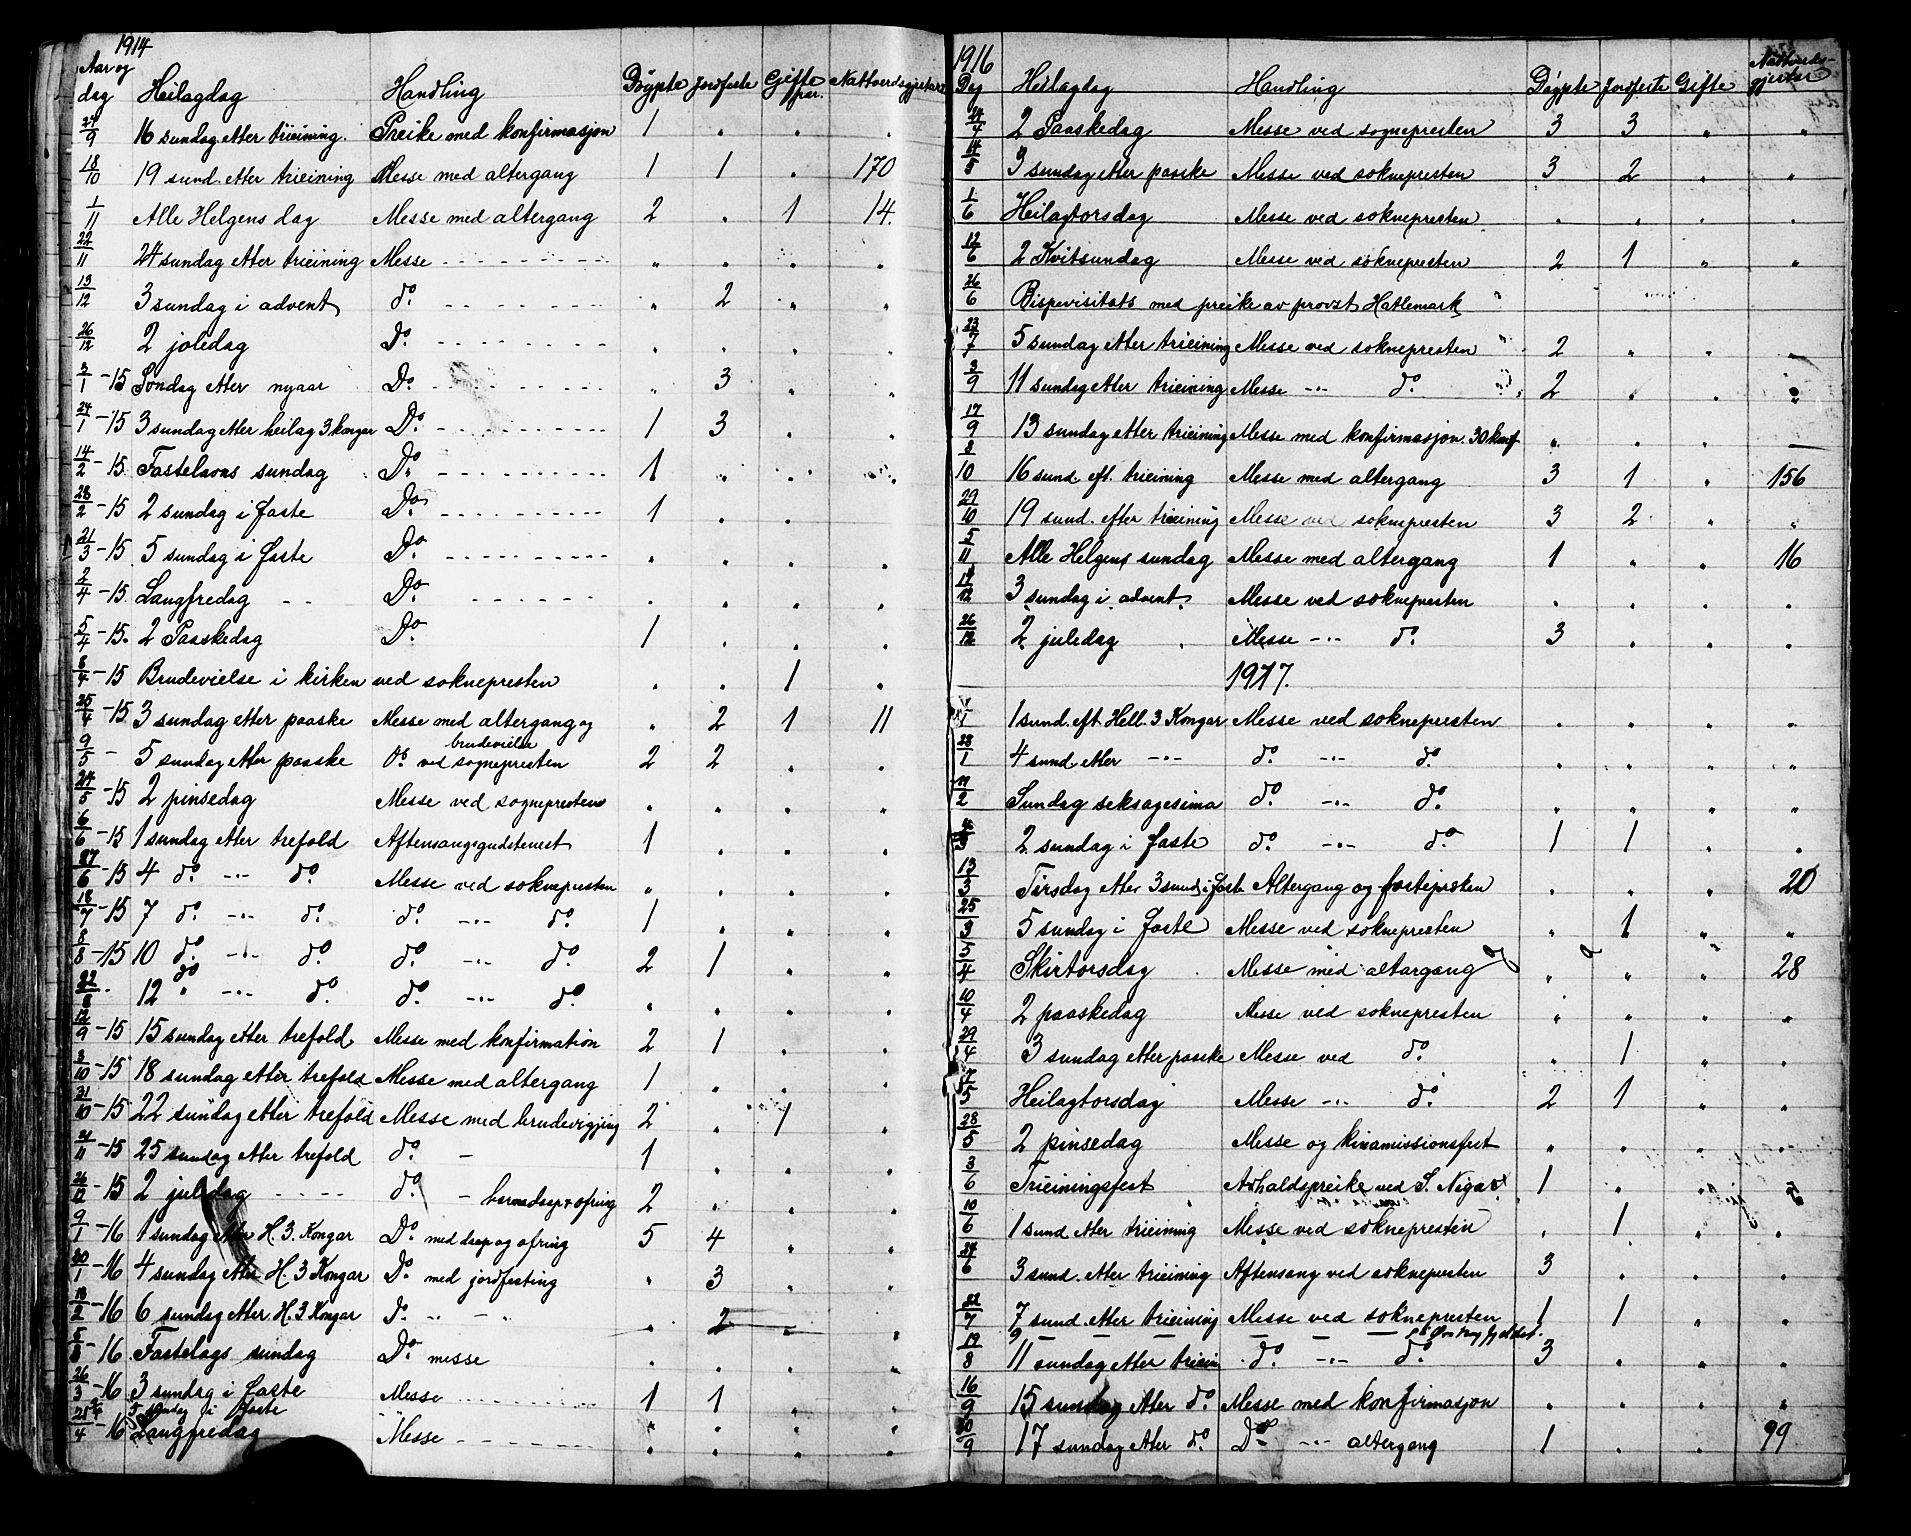 1914
Aar og dag Heilagdag Handling Döypte Jordfeste Gifte par. Nattverdsgjestar
24/9 16 sundag etter trieining. Preike med konfirmasjon 1 " " "
18/10 19 sund. etter trieining Messe med altergang 1 1 " 170
1/11 Alle Helgens dag Messe med altergang 2 " 1 14.
22/11 24 sundag etter trieining Messe " " " "
13/12 3 sundag i advent do. " 2 " "
26/12 2 joledag Do. " " " "
3/1 -15 Søndag etter nyaar Do. " 3 " "
24/1 -15 3 sundag etter heilag 3 kongar Do. 1 3 " "
14/2 -15. Fastelaons sundag Do. 1 " " "
28/2 -15 2 sundag i faste Do. 1 " " "
21/3 -15. 5 sundag i faste Do. " " " "
2/4 -15. Langfredag Do. " " " "
5/4 -15. 2 Paaskedag Do. 1 " " "
8/4 -15 Brudevielse i kirken ved soknepresten " " 1 "
25/4 -15 3 sundag etter paaske Messe med altergang og brudevielse " 2 1 11
9/5 - 5 sundag etter paaske Do. ved sognepresten 2 2 " "
24/5 -15 2 pinsedag Messe ved sognepresten " " " "
6/6 -15 1 sundag etter trefold Aftensangsgudstenest 1 " " "
27/6 -15 4 do. -"- do. Messe ved soknepresten " " " "
18/7 -15 7 do. -"- do. do. -"- do. 1 " " "
8/8 -15 10 do. -"- do. do. -"- do. 2 1 " "
22/8 12 do -"- do. do. -"- do. " " " "
12/9 -15 15 sundag etter trefold Messe med konfirmation 2 1 " "
3/10 -15 18 sundag etter trefold Messe med altergang 1 " " "
31/10 -15 22 sundag etter trefold Messe med brudevigjing 2 " 1 "
21/11 -15 25 sundag etter trefold do. - 1 " " "
26/12 -15 2 juledag do. - barnedaap + ofring 2 " " "
9/1 -16 1 sundag etter H. 3. Kongar Do. med daap og ofring 5 4 " "
30/1 -16 4 sundag etter H. 3 Kongar Do. med jordfesting " 3 " "
13/2 -16 6 sundag etter H. 3 Kongar Do. " - " 2 " "
5/3 -16 Fastelags sundag Do. messe " " " "
26/3 -16 3 sundag i faste Messe 1 1 " "
5 sundag i faste
21/4 -16 Langfredag Messe " " " "
1916
Dag Heilagdag Handling Döypte Jordfeste Gifte Nattverds-gjestar
24/4 2 Paaskedag Messe ved sognepresten 3 3 " "
14/5 3 sundag etter paaske Messe ved soknepresten 3 2 " "
1/6 Heilagtorsdag Messe ved soknepresten " " " "
12/6 2 Kvitsundag Messe ved soknepresten 2 1 " "
26/6 Bispevisitats med preike av provst Hatlemark
23/7 5 sundag etter trieining Messe ved soknepresten 2 " " "
3/9 11 sundag etter trieining Messe -"- do. 2 " " "
17/9 13 sundag etter trieining Messe med konfirmasjon. 30 konf. " " " -
8/10 16 sund. eft. trieining Messe med altergang 3 1 " 156
29/10 19 sund. efter trieining Messe ved soknepresten 3 2 " "
5/11 Alle Helgens sundag Messe med altergang 1 " " 16
17/12 3 sundag i advent Messe ved soknepresten " " " "
26/12 2 juledag Messe -"- do. 3 " " "
1917.
1 sund. eft. Hell. 3 Kongar Messe ved soknepresten " " " "
28/1 4 sund etter -"- do. -"- do. " " " "
11/2 Sundag seksagesima do. -"- do. " " " "
4/3 2. sundag i faste do. -"- do. 1 1 " "
13/3 Tirsdag etter 3 sund i fast. Altergang og fastepreken " " " 20
25/3 5 sundag i faste Messe ved soknepresten " 1 " "
5/4 Skirtorsdag Messe med altargang " " " 28
10/4 2 paaskedag Messe ved soknepresten " " " "
29/4 3 sundag etter paaske Messe ved do. " 1 " "
17/5 Heilagtorsdag Messe -"- do. 2 1 " "
28/5 2 pinsedag Messe og kinamissionsfest " " " "
3/6 Trieiningsfest Avhaldspreike ved S. 1 " "
10/6 1 sund etter trieining Messe ved soknepresten " 1 " "
24/6 3 sund. etter trieining Aftensang ved soknepresten 3 " " "
22/7 7 sund. etter trieining Messe ved soknepresten 1 1 " "
9 - - - - - -
19/8 11 sundag etter triein do. -"- do. 3 " " "
16/9 15 sundag etter do. Messe med konfirmasjon " " " "
30/9 17 sundag etter do. Do. -"- altergang 1 " " 99